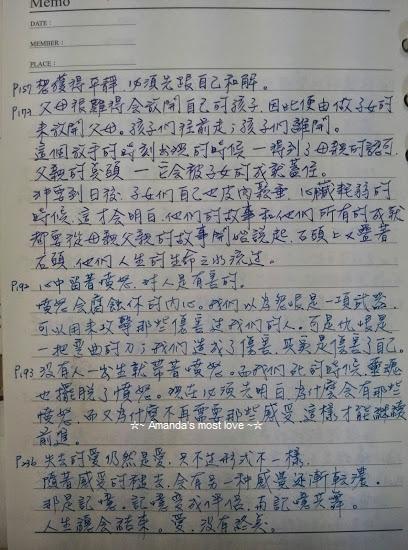 Memo
DATE :
MEMBER :
PLACE :
P157 想獲得平靜,必須先跟自己和解。
P173 父母很難得會放開自己的孩子,因此便由做子女的
來放開父母。孩子們往前走;孩子們離開。
這個放手的時刻出現的時候—得到了母親的認可
父親的點頭—它會被子女的成就蓋住。
非要到日後,子女們自己也皮肉鬆垂、心臟耗弱的
時候,這才會明白,他們的故事和他們所有的成就
都要從母親父親的故事開始說起,石頭上又疊著
石頭,他們人生的生命之水流過。
P190 心中留著憤怒,對人是有害的。
憤怒會腐蝕你的內心。我們以為怨恨是一項武器,
可以用來攻擊那些傷害過我們的人。可是仇恨是
一把彎曲的刀;我們造成了傷害,其實是傷害了自己。
P193 沒有人一出生就帶著憤怒。而我們死的時候,靈魂
也擺脫了憤怒。現在必須先明白,為什麼會有那些
憤怒,而又為什麼不再需要那些感受,這樣才能繼續
前進。
☆~ Amanda's most love ~☆
P236 失去的愛仍然是愛,只不過形式不一樣,
隨著感受的褪去,會有另一種感受逐漸較濃。
那是記憶,記憶變成伴侶,而記憶共舞。
人生總會結束。愛,沒有終點。